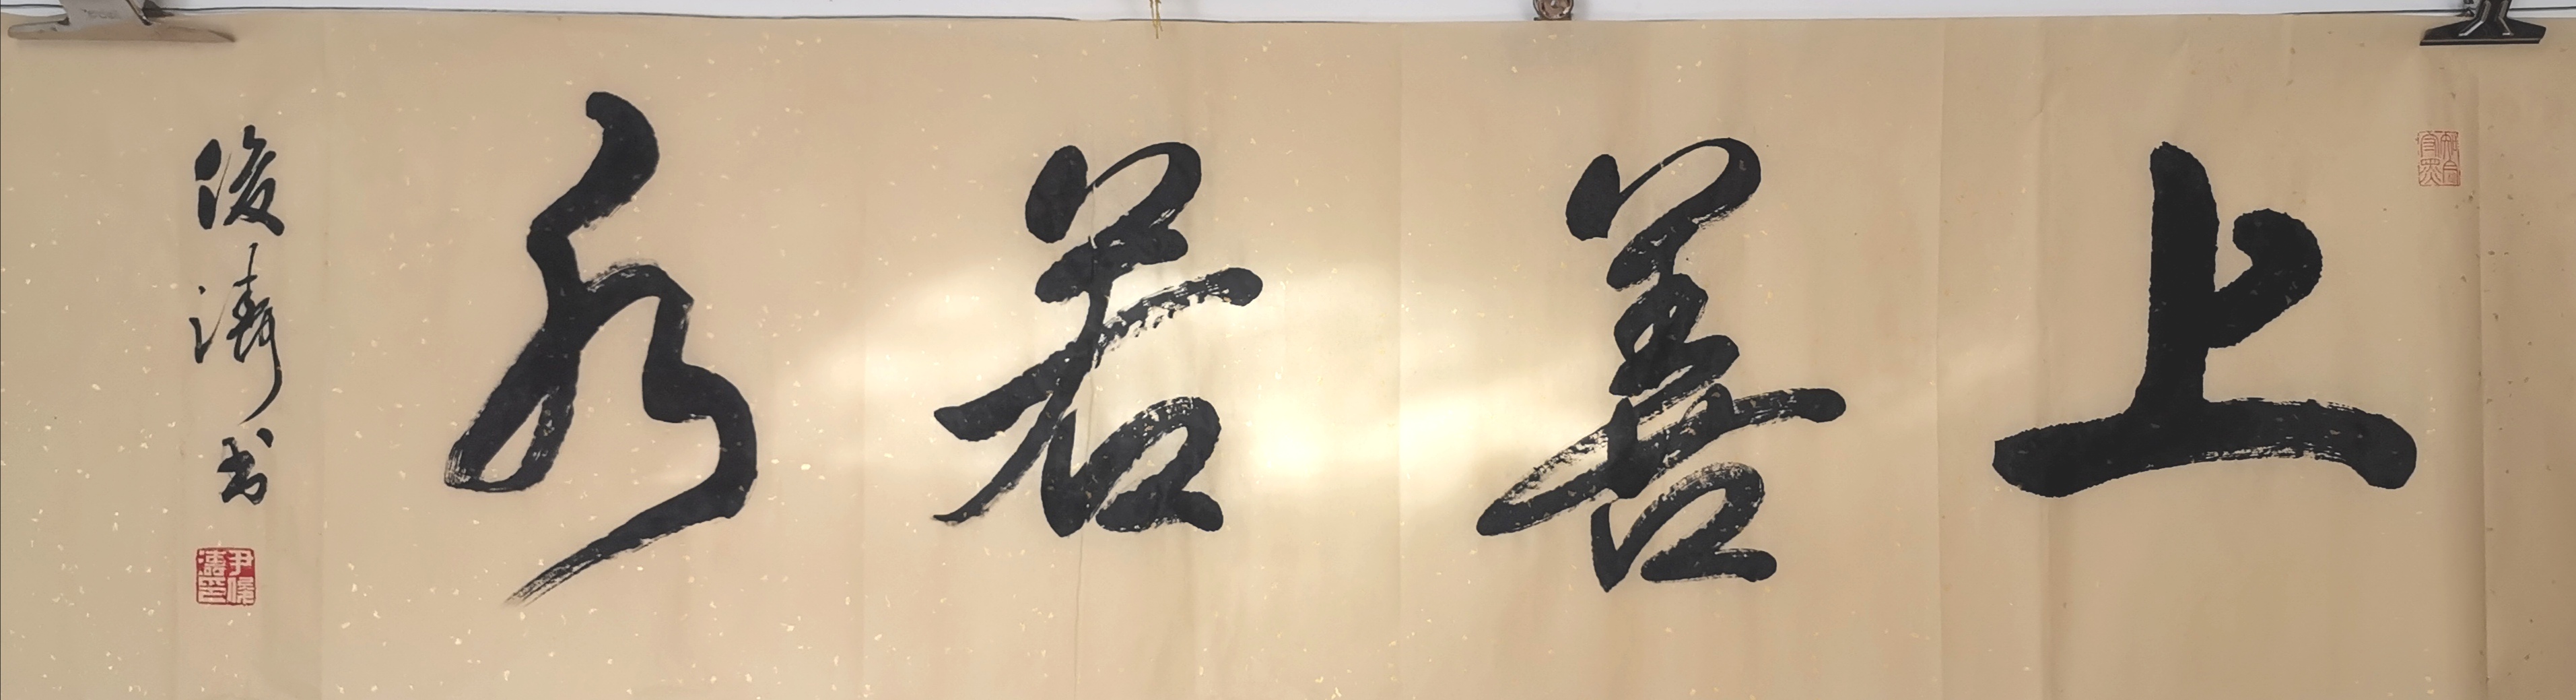 上善若水
俊涛书
尹俊
涛印